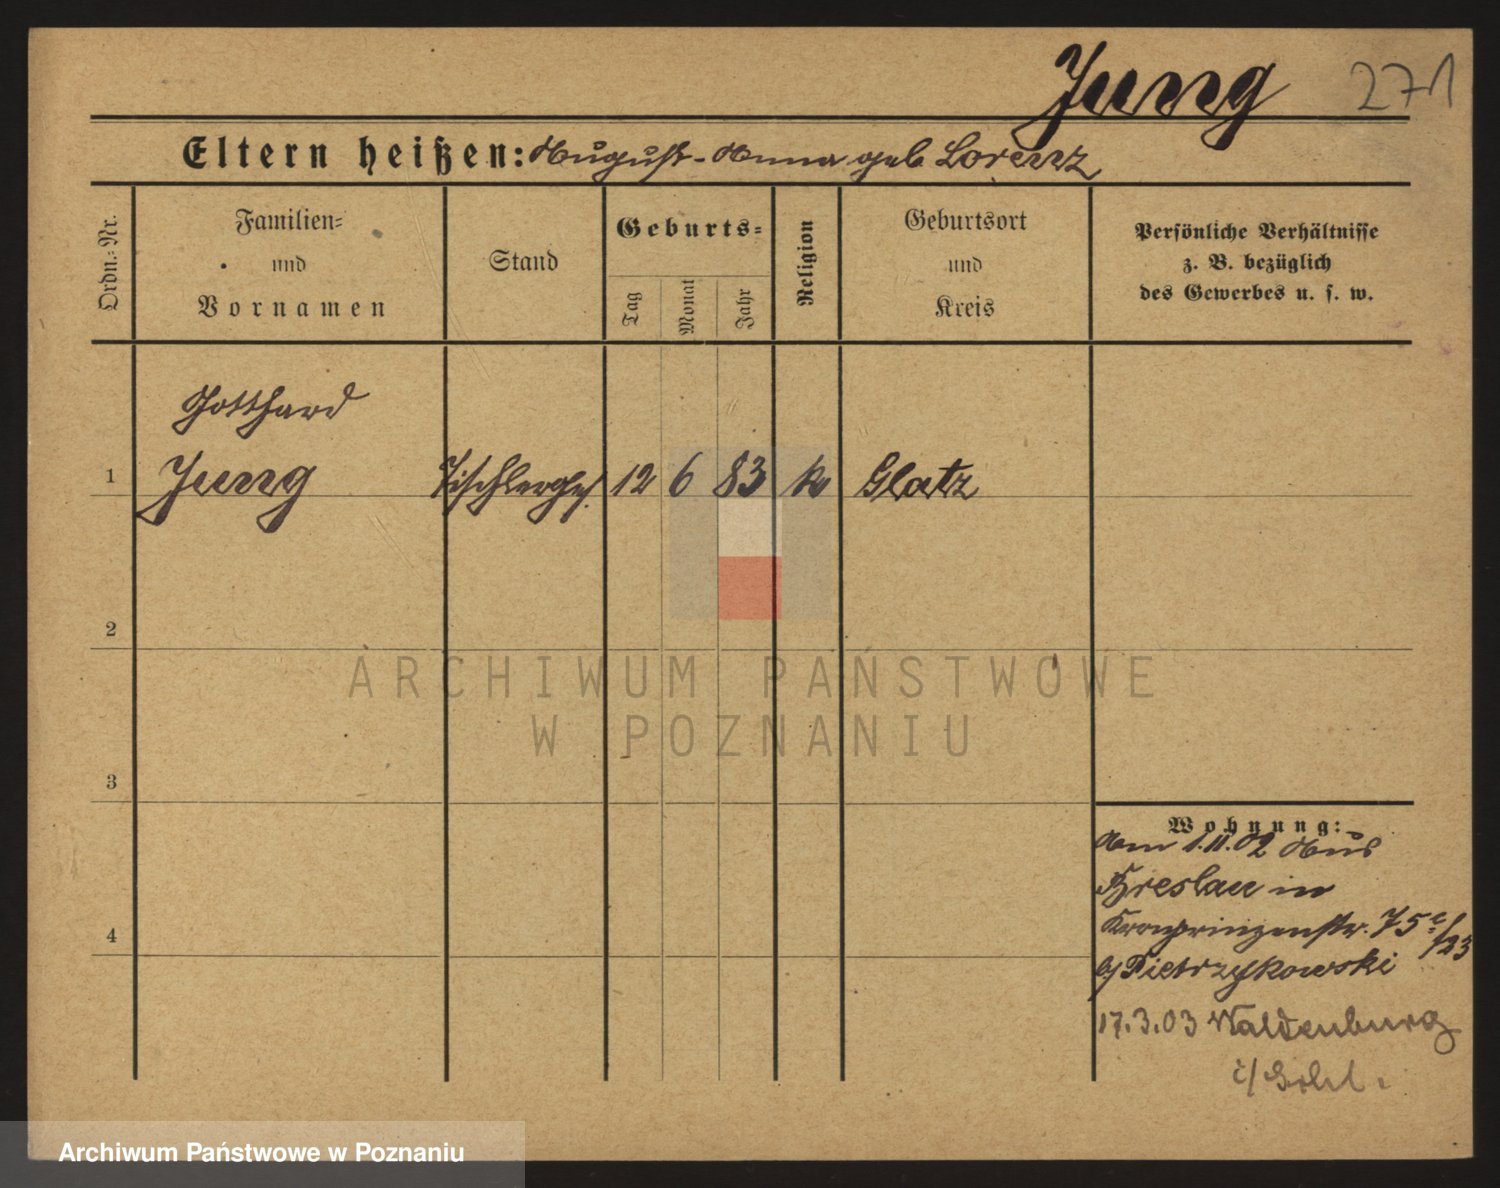 Jung 271
Eltern heißen: August - Anna geb Lorenz
Ordn.-Nr.
Familien-
und
Vornamen
Stand
Geburts-
Tag
Monat
Jahr
Religion
Geburtsort
und
Kreis
Persönliche Verhältnisse
z. B. bezüglich
des Gewerbes u. s. w.
Gotthard
1 Jung Tischlerges. 12 6 83 k Glatz
2
ARCHIWUM PAŃSTWOWE
W POZNANIU
3
Wohnung:
Am 1.11.02 Aus
Breslau in
Kronprinzenstr. 75
b/ Pietrzykowski
4
17.3.03 Waldenburg
i/ Schl.
Archiwum Państwowe w Poznaniu